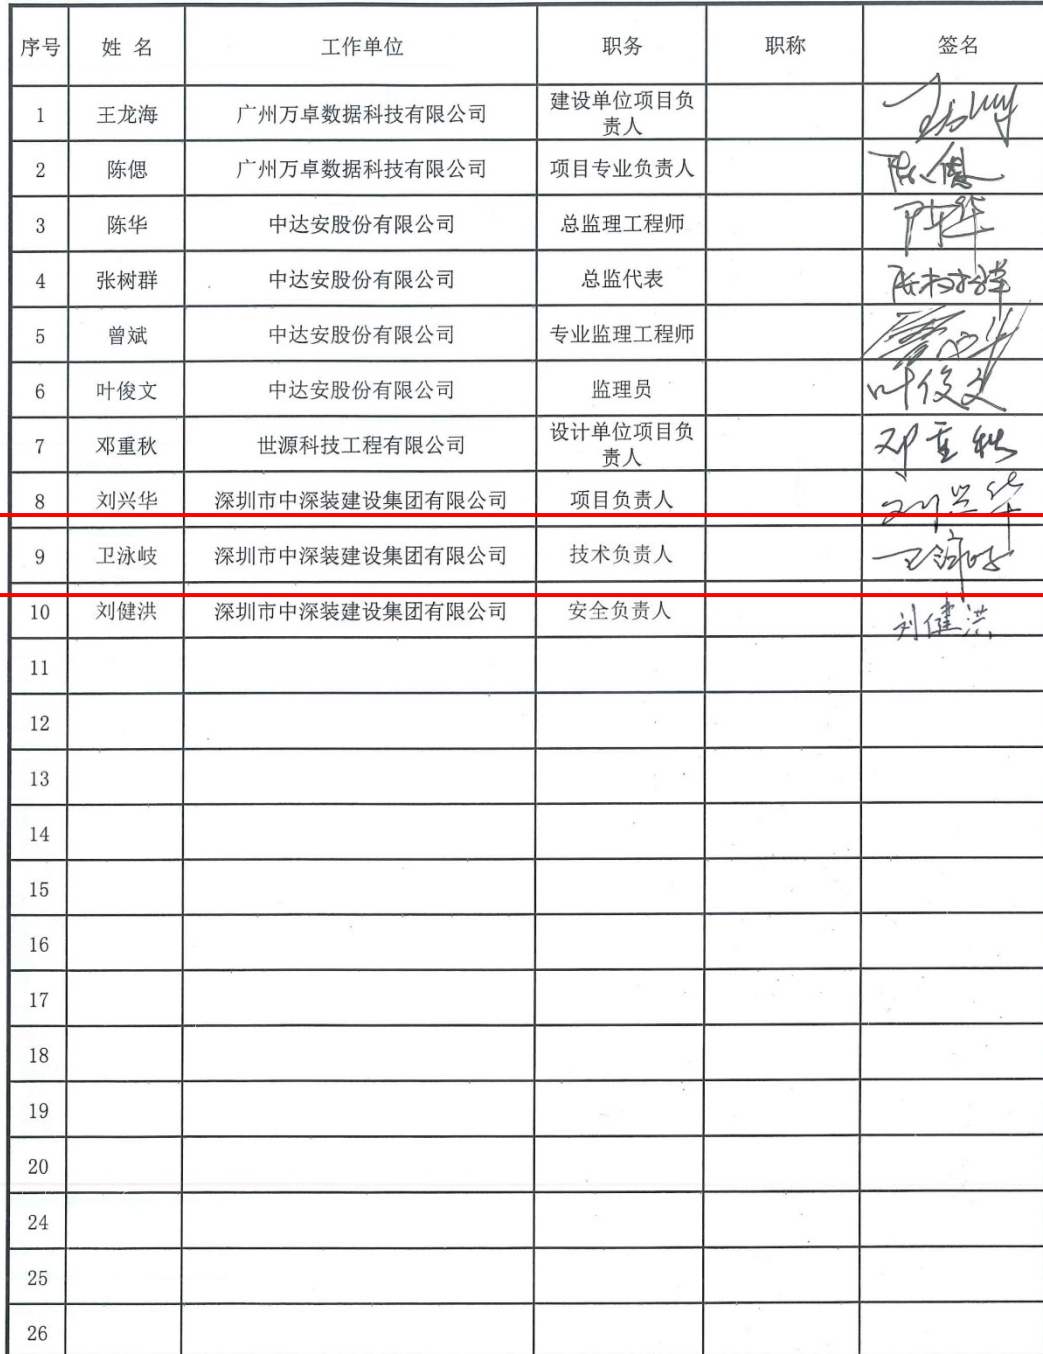 序号 姓 名 工作单位 职务 职称 签名
1 王龙海 广州万卓数据科技有限公司 建设单位项目负责人
2 陈偲 广州万卓数据科技有限公司 项目专业负责人 陈偲
3 陈华 中达安股份有限公司 总监理工程师 陈华
4 张树群 中达安股份有限公司 总监代表
5 曾斌 中达安股份有限公司 专业监理工程师
6 叶俊文 中达安股份有限公司 监理员 叶俊文
7 邓重秋 世源科技工程有限公司 设计单位项目负责人 邓重秋
8 刘兴华 深圳市中深装建设集团有限公司 项目负责人 刘兴华
9 卫泳岐 深圳市中深装建设集团有限公司 技术负责人
10 刘健洪 深圳市中深装建设集团有限公司 安全负责人 刘健洪
11
12
13
14
15
16
17
18
19
20
24
25
26